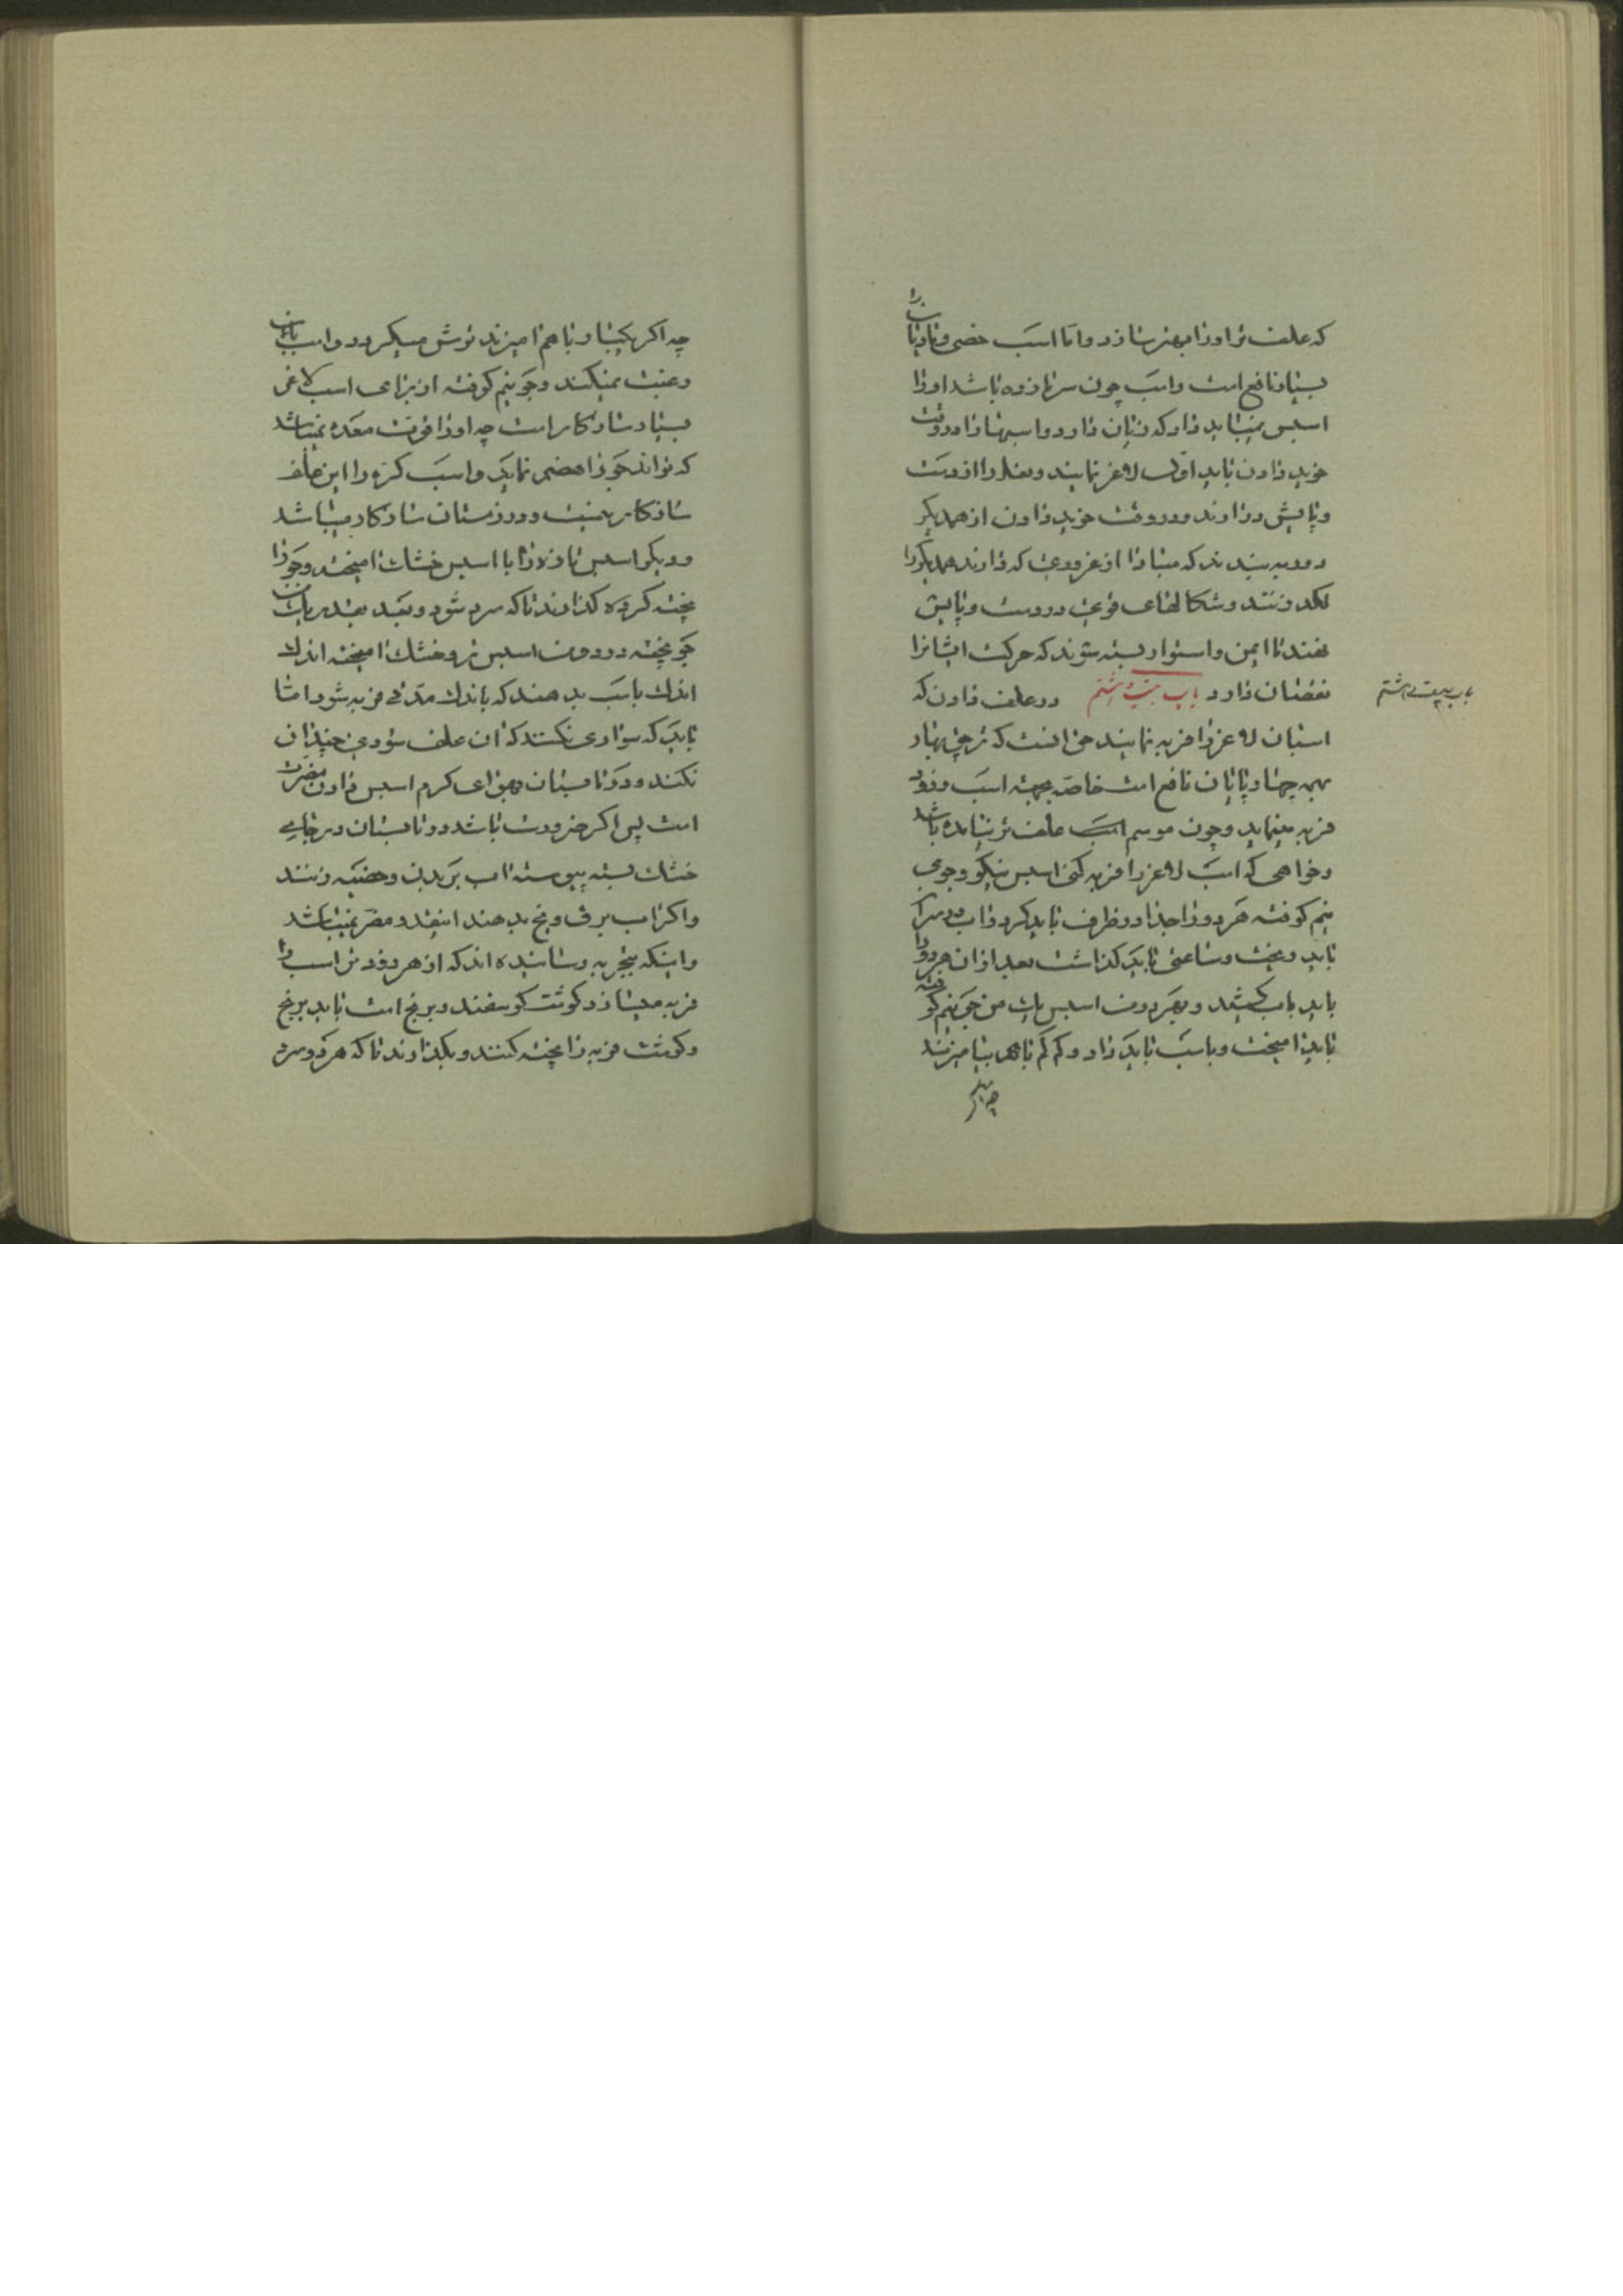 که علف تر اورا بهتر سازد و اما اسب خصی و مادیان را
بسیار نافع است و اسب چون سرما زده باشد اورا
اسپس نمیباید داد که زیان دارد و اسبها را در وقت
خوید دادن باید اول لاغر نمایند و نعل را از دست
و پایش در آرند و در وقت خوید دادن از همدیگر
دور ببندند که مبادا از غروری که دارند همدیگر را
لگد زنند و شکالهای قوی در دست و پایش
نهند تا ایمن و استوار بسته شوند که حرکت ایشانرا
نقصان دارد باب بیست و هشتم در علف دادن که
باب بیست و هشتم
اسبان لاغر را فربه نمایند حق آنست که ترچی بهار
بهمه چهارپایان نافع است خاصه بجهة اسب و زود
فربه مینماید و چون موسم است علف تر نیامده باشد
و خواهی که اسب لاغر را فربه کنی اسپس نیکو و جوی
نیم کوفته هر دو را جدا در ظرف باید کرد و آب در سر آن
باید ریخت و ساعتی باید گذاشت بعد از آن هر دو را
باید بآب کشید و بهر دو من اسپس یک من جو نیم کوفته
باید آمیخت و باسب باید داد و کم کم باهم بیامیزند
چه اگر
چه اگر یکبار باهم آمیزند ترش میگردد و اسب بآن
رغبت نمیکند و جو نیم کوفته از برای اسب لاغر
بسیار سازکار است چه اورا قوت معده نمیباشد
که تواند جو را هضم نماید و اسب کره را این علف
سازکار نیست و در زمستان سازکار میباشد
و دیگر اسپس تازه را با اسپس خشک آمیخته و جو را
پخته کرده گذارند تا که سرد شود و بعد بقدر یک من
جو پخته در دو من اسپس تر و خشک آمیخته اندک
اندک باسب بدهند که باندک مدتی فربه شود اما
باید که سواری نکنند که آن علف سودی چندان
نکند و در تابستان و هوای گرم اسپس دادن مضرت
است پس اگر ضرورت باشد در تابستان در جای
خشک بسته پیوسته آب بر بدن و خصیه زنند
و اگر آب برف و یخ بدهند انفع و مضر نمیباشد
و اینکه بتجربه رسانیده اند که از هر زودتر اسب را
فربه میسازد گوشت گوسفند و برنج است باید برنج
و گوشت فربه را پخته کنند و بگذارند تا که هر دو سرد